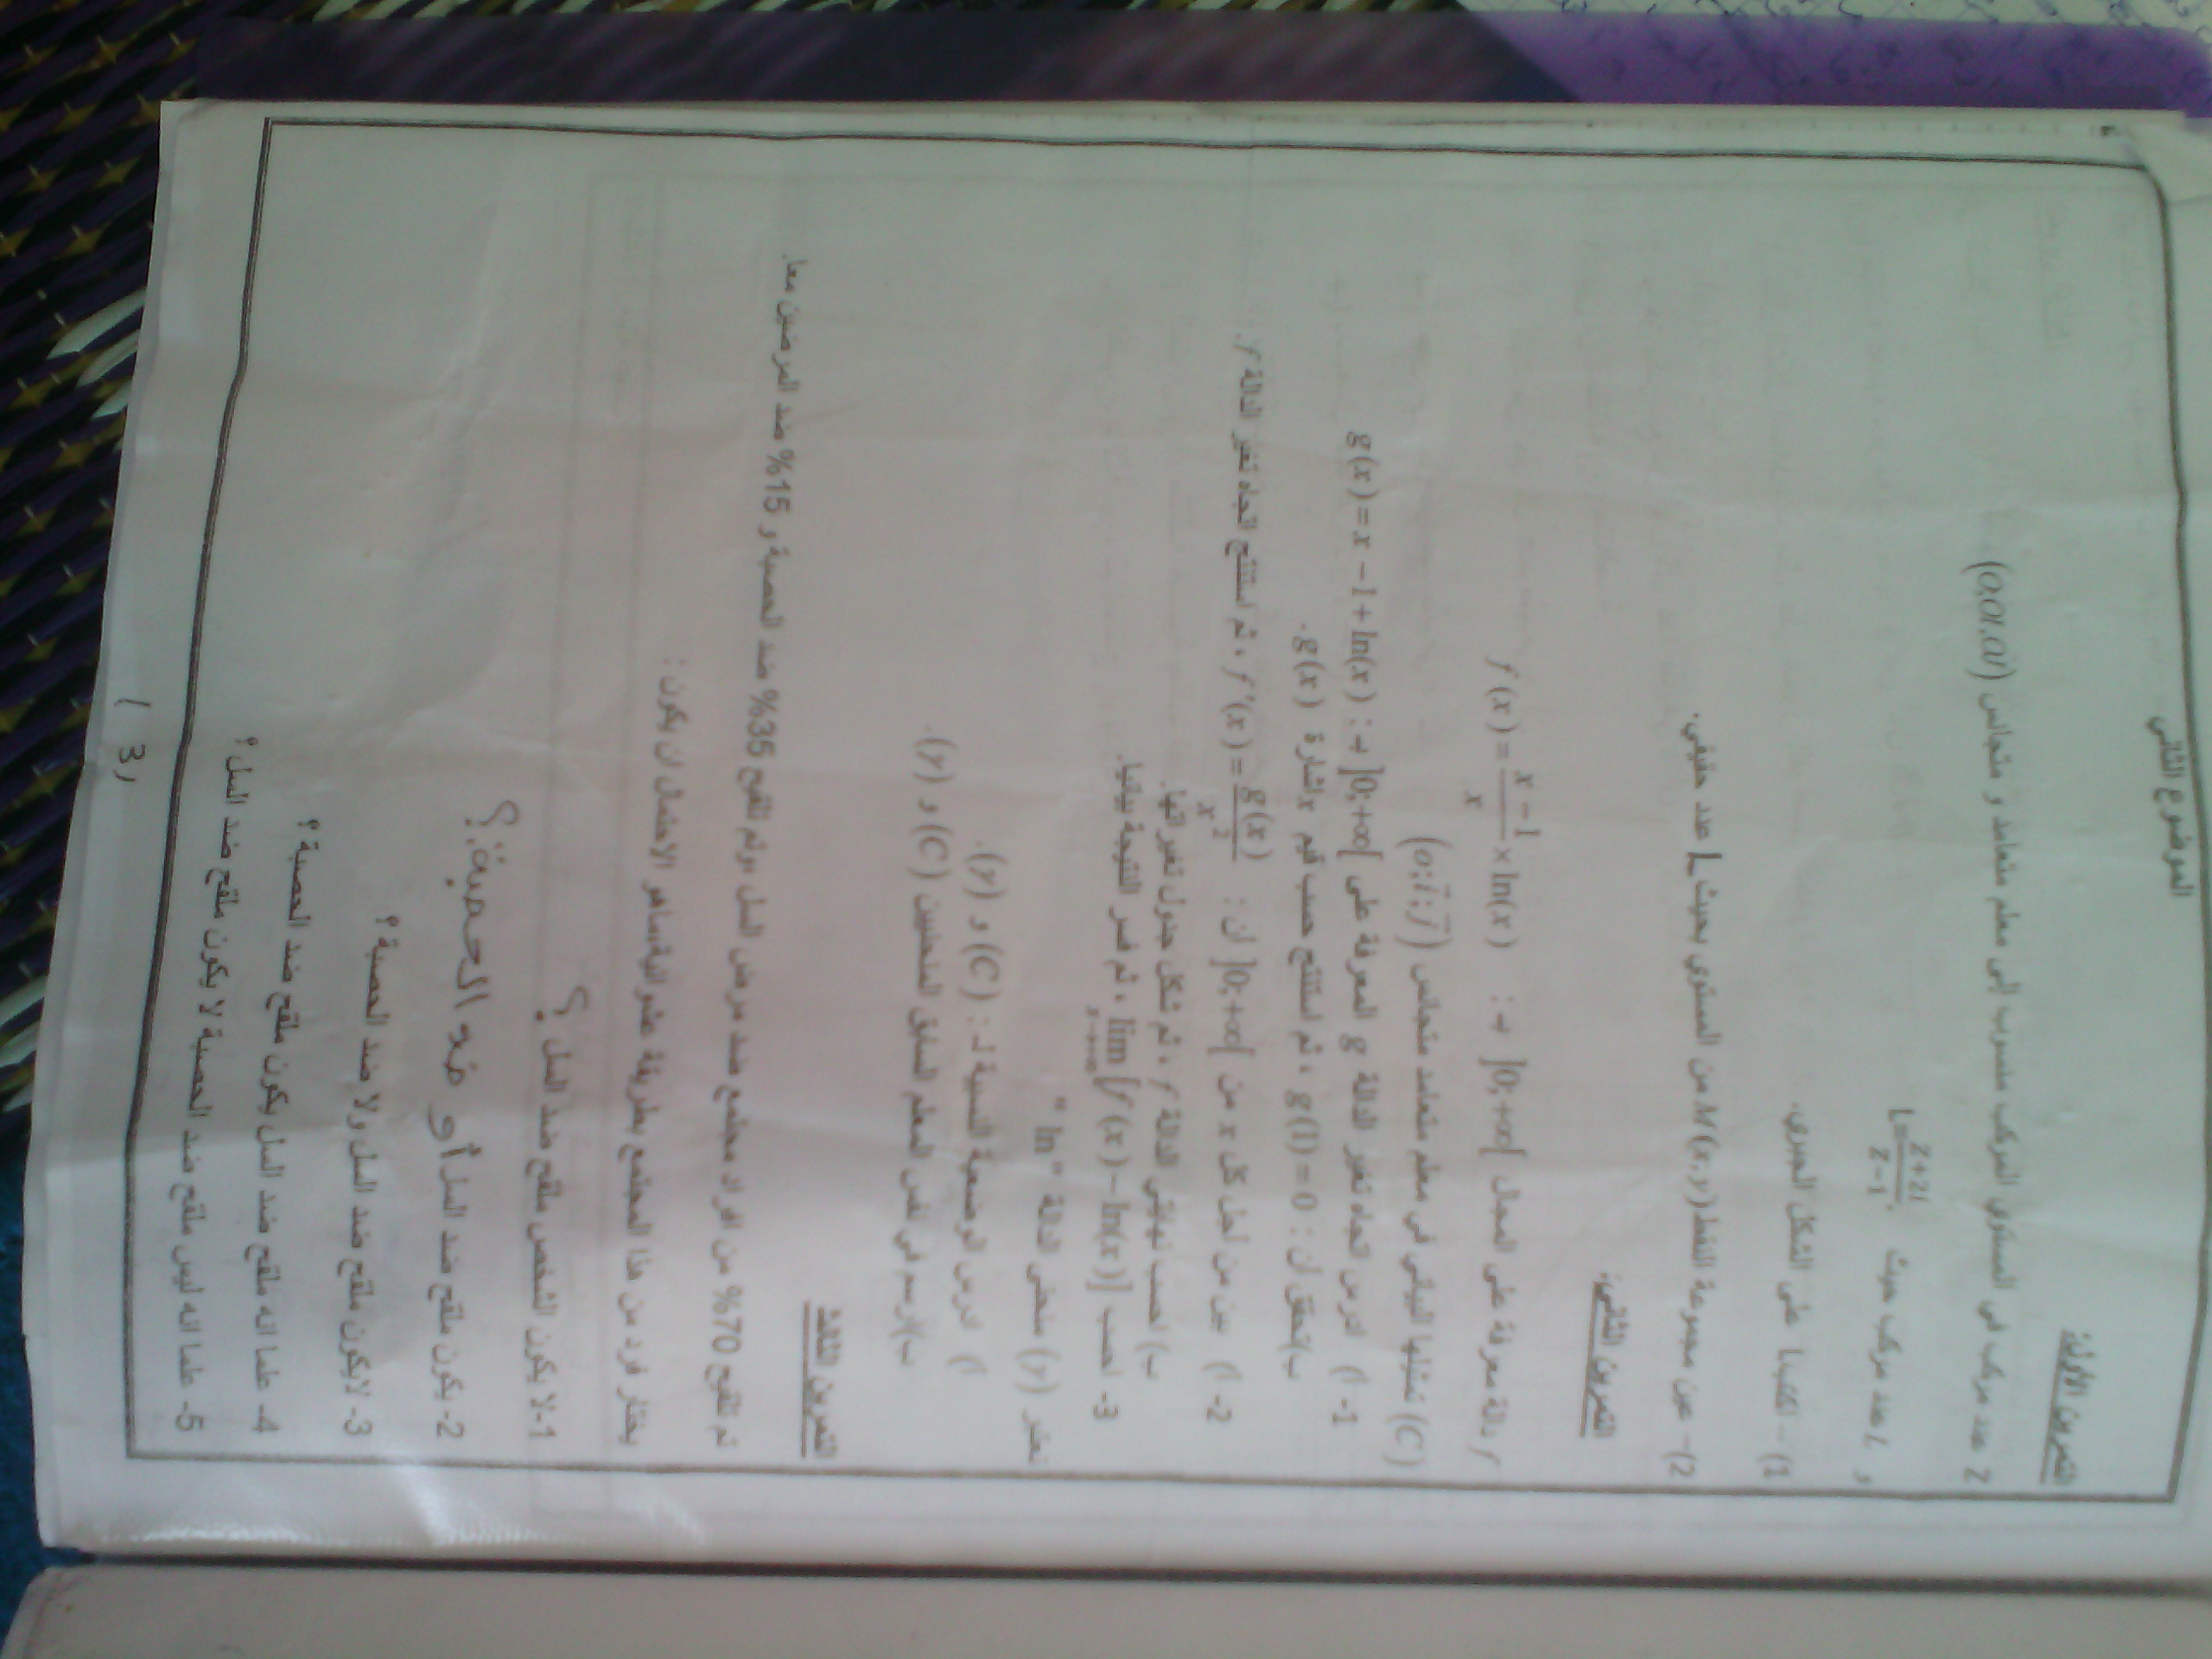 الموضوع الثاني
التمرين الأول:
Z عدد مركب في المستوي المركب منسوب إلى معلم متعامد و متجانس (O,OI,OJ)
و L عدد مركب حيث L=\frac{Z+2i}{Z-1}.
1) – اكتب L على الشكل الجبري.
2) – عين مجموعة النقط M(x,y) من المستوي بحيث L عدد حقيقي.
التمرين الثاني:
f دالة معرفة على المجال ]0;+∞[ بـ : f(x)=\frac{x-1}{x}×ln(x)
(C) تمثيلها البياني في معلم متعامد متجانس (o;i;j)
1- أ) ادرس اتجاه تغير الدالة g المعرفة على ]0;+∞[ بـ : g(x)=x-1+ln(x)
ب) تحقق أن : g(1)=0 ، ثم استنتج حسب قيم x اشارة g(x).
2- أ) بين من أجل كل x من ]0;+∞[ أن : f'(x)=\frac{g(x)}{x^2} ، ثم استنتج اتجاه تغير الدالة f.
ب) احسب نهايتي الدالة f ، ثم شكل جدول تغيراتها.
3- احسب \lim_{x→+∞}[f(x)-ln(x)] ، ثم فسر النتيجة بيانيا.
نعتبر (γ) منحنى الدالة "ln"
أ) ادرس الوضعية النسبية لـ : (C) و (γ).
ب) ارسم في نفس المعلم السابق المنحنيين (C) و (γ).
التمرين الثالث
تم تلقيح 70% من افراد مجتمع ضد مرض السل ،وتم تلقيح 35% ضد الحصبة و 15% ضد المرضين معا.
يختار فرد من هذا المجتمع بطريقة عشوائية،ماهو الاحتمال ان يكون :
1-لا يكون الشخص ملقح ضد السل ؟
2- يكون ملقح ضد السل أو ضد الحصبة؟
3- لايكون ملقح ضد السل ولا ضد الحصبة ؟
4- علما انه ملقح ضد السل يكون ملقح ضد الحصبة ؟
5- علما انه ليس ملقح ضد الحصبة لا يكون ملقح ضد السل ؟
3